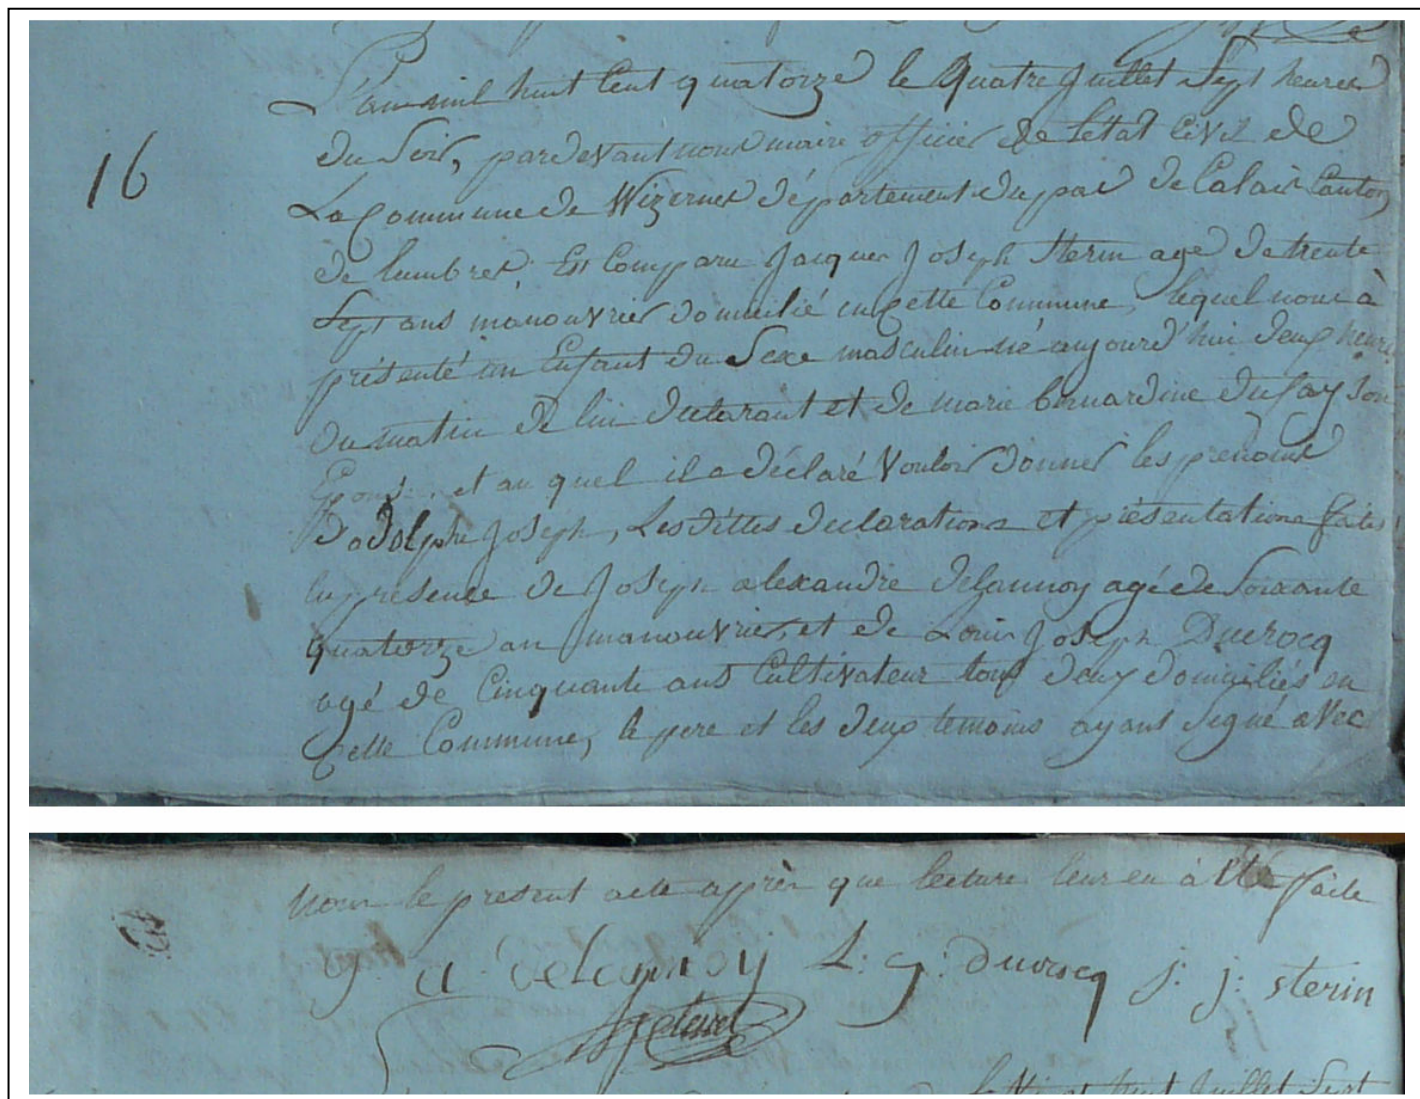 16
L'an mil huit Cent quatorze le quatre Juillet Sept heures
du Soir, pardevant nous maire officier de l'etat Civil de
La Commune de Wizernes département du pas de Calais Canton
de lumbres. Est Comparu Jacques Joseph Sterin agé de trente
Sept ans manouvrier domicilié en Cette Commune, lequel nous à
présenté un Enfant du Sexe masculin né aujourd'hui deux heures
du matin de lui declarant et de marie bernardine dufay Son
Epouse et au quel il a déclaré Vouloir donner les prenoms
d'adolphe Joseph, Les dittes declarations et présentations faites
en présence de Joseph alexandre delannoy agé de Soixante
quatorze an manouvrier, et de Louis Joseph Ducrocq
agé de Cinquante ans Cultivateur tous deux domiciliés en
Cette Commune, le pere et les deux temoins ayant Signé avec
nous le present acte après que lecture leur en à été faite
j a delannoy L: j: ducrocq j: j: sterin
Juillet Sept